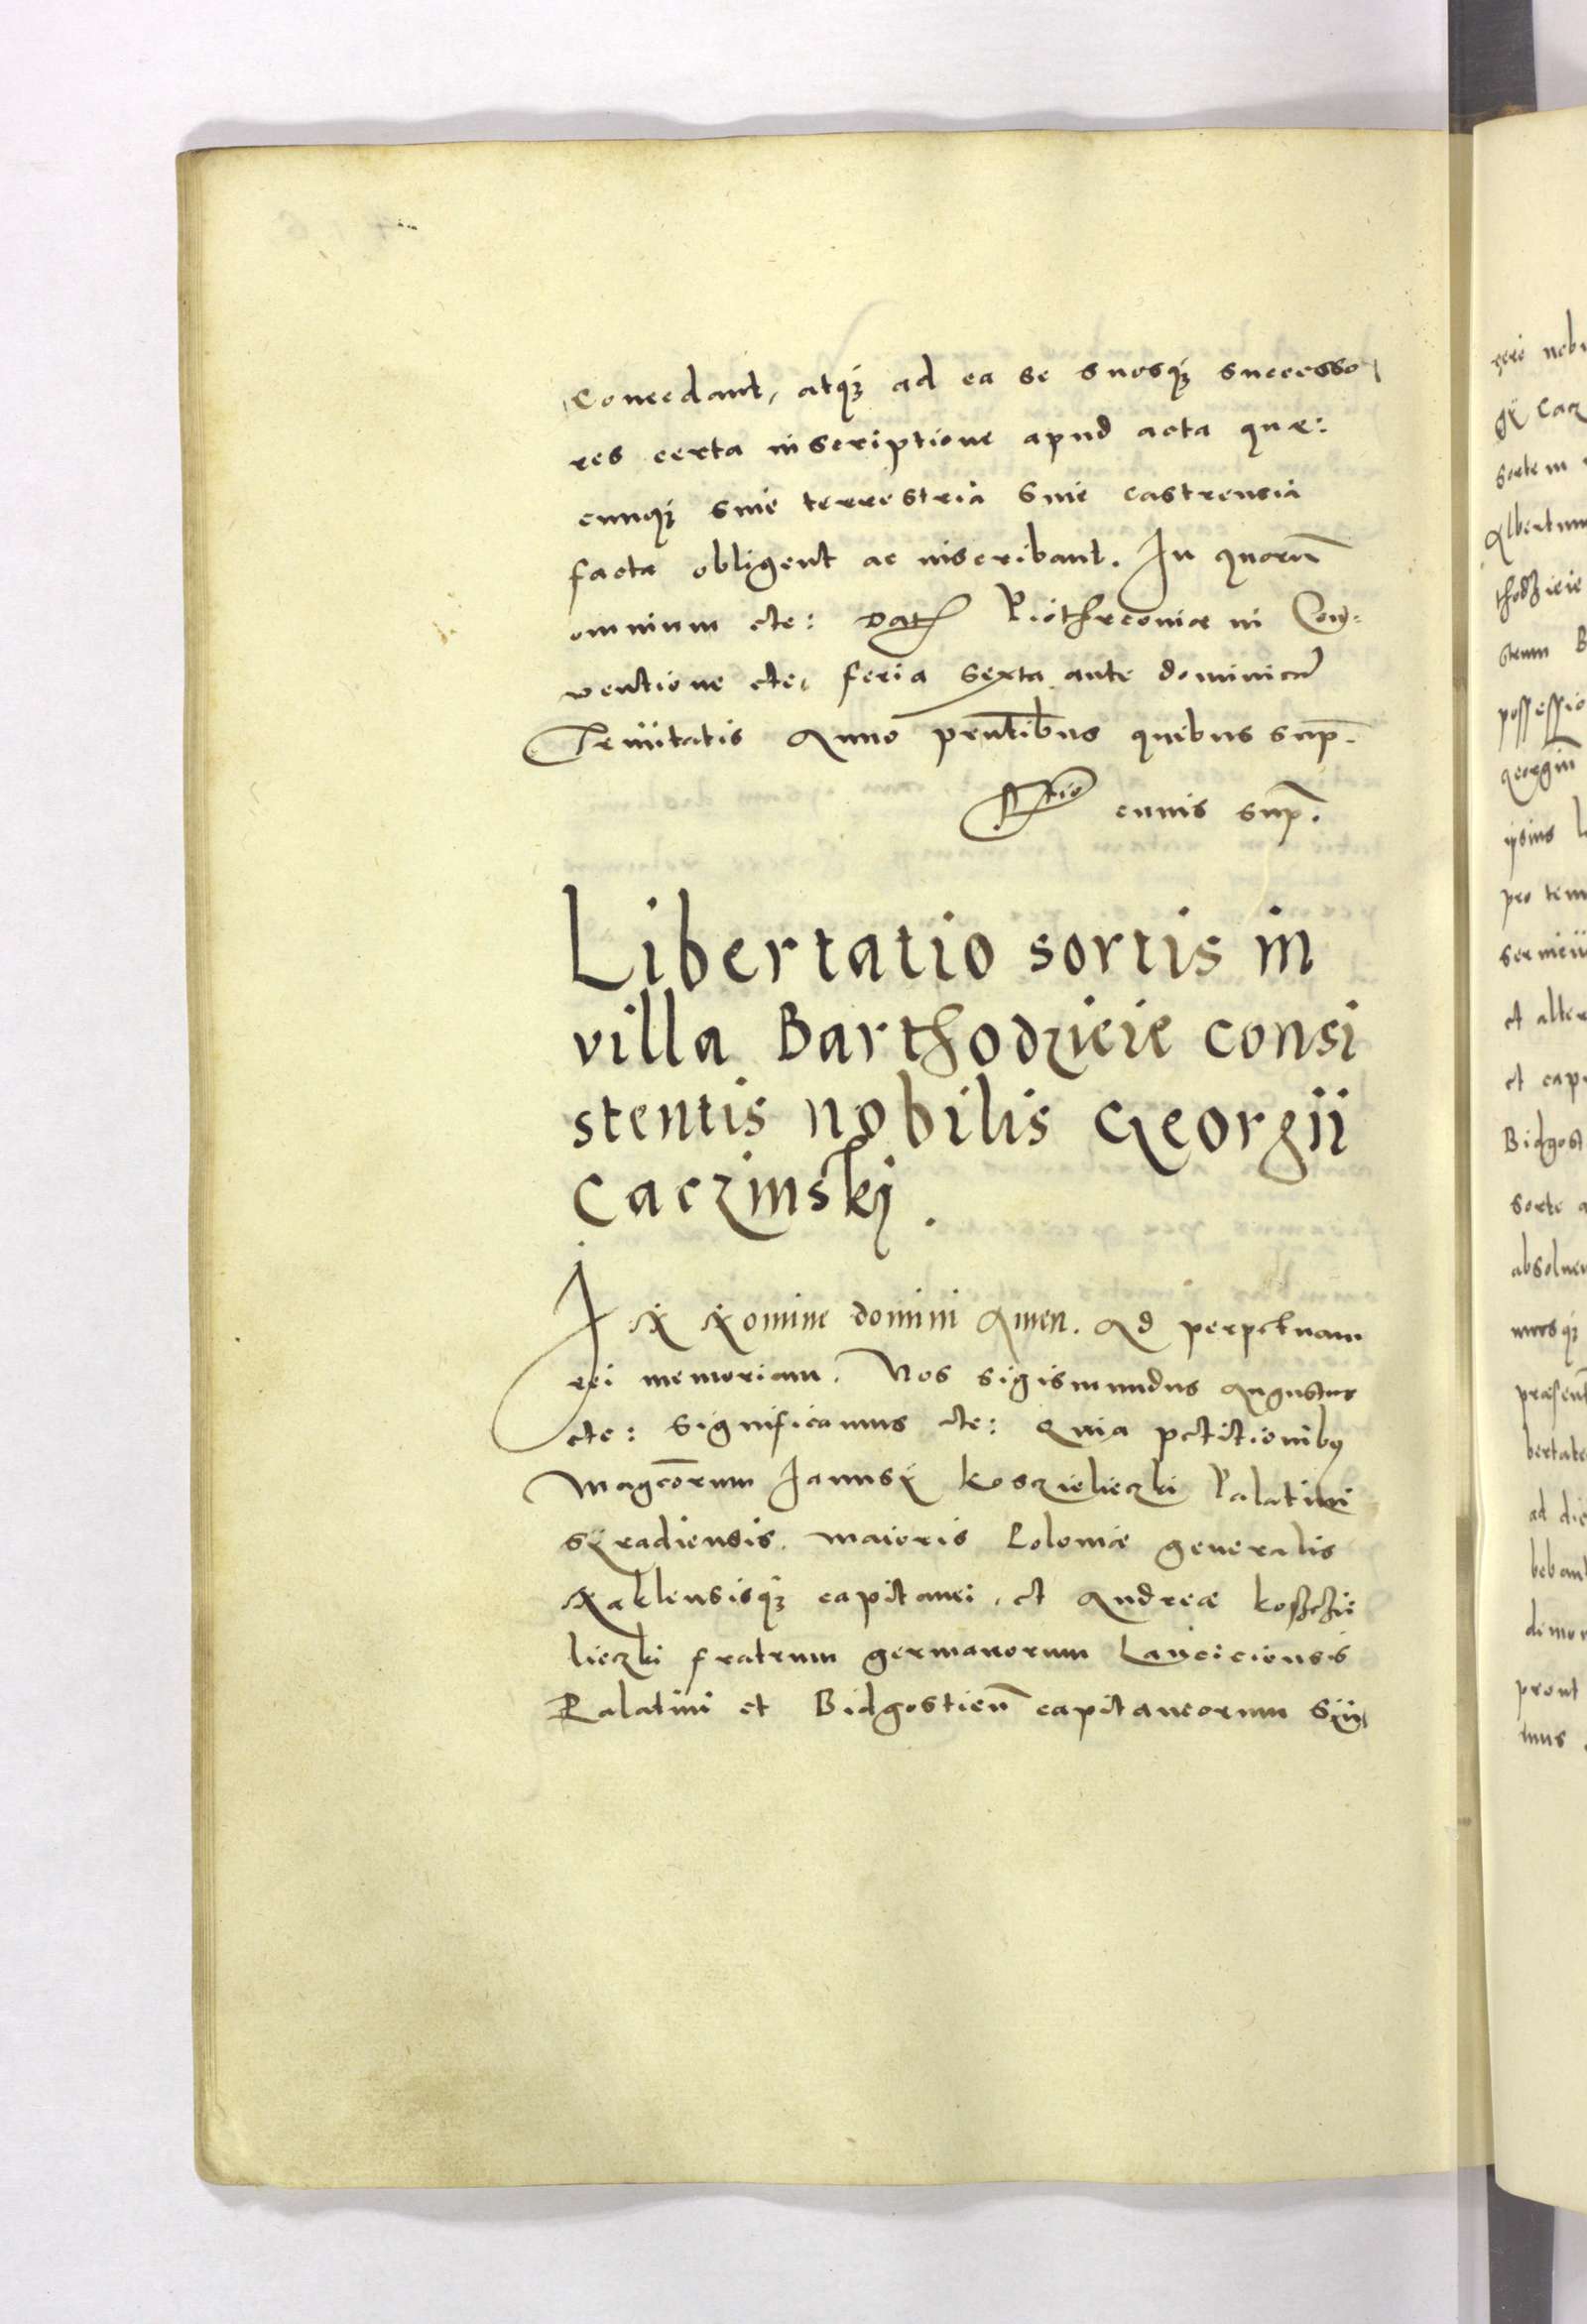 Concedant, atq₃ ad ea se suosq₃ successo
res certa inscriptione apud acta quæ:
cunq₃ siue terrestria siue castrensia
facta obligent ac inscribant. In quorū
omnium etc: Dat Piothrconiæ in Con=
uentione etc. feria sexta ante dominicā
Trinitatis Anno prntibus quibus sup.
Rtio cuius sup.
Libertatio sortis in
villa Barthodzieie consi
stentis nobilis Georgii
Caczinskj.
IN Nomine domini Amen. Ad perpetuam
rei memoriam. Nos Sigismundus Augustus
etc: Significamus etc: Quia petitionibꝰ
Magcorum Janusÿ Koszielieczki Palatini
Syradiensis. Maioris Poloniæ generalis
Naklensisq₃ capitanei, et Andreæ Koschie
lieczki fratrum germanorum Lanciciensis
Palatini et Bidgostien̄ capitaneorum
rere nobi
gÿ Cacz
sortem
Albertum
thodzieie
strum B
possessio
Georgiū
ipsius
pro tem
seruieii
et alter
et cap
Bidgost
sorte a
absoluen
nrosq₃
præsent
bertate
ad die
beban
dimo
prout
mus